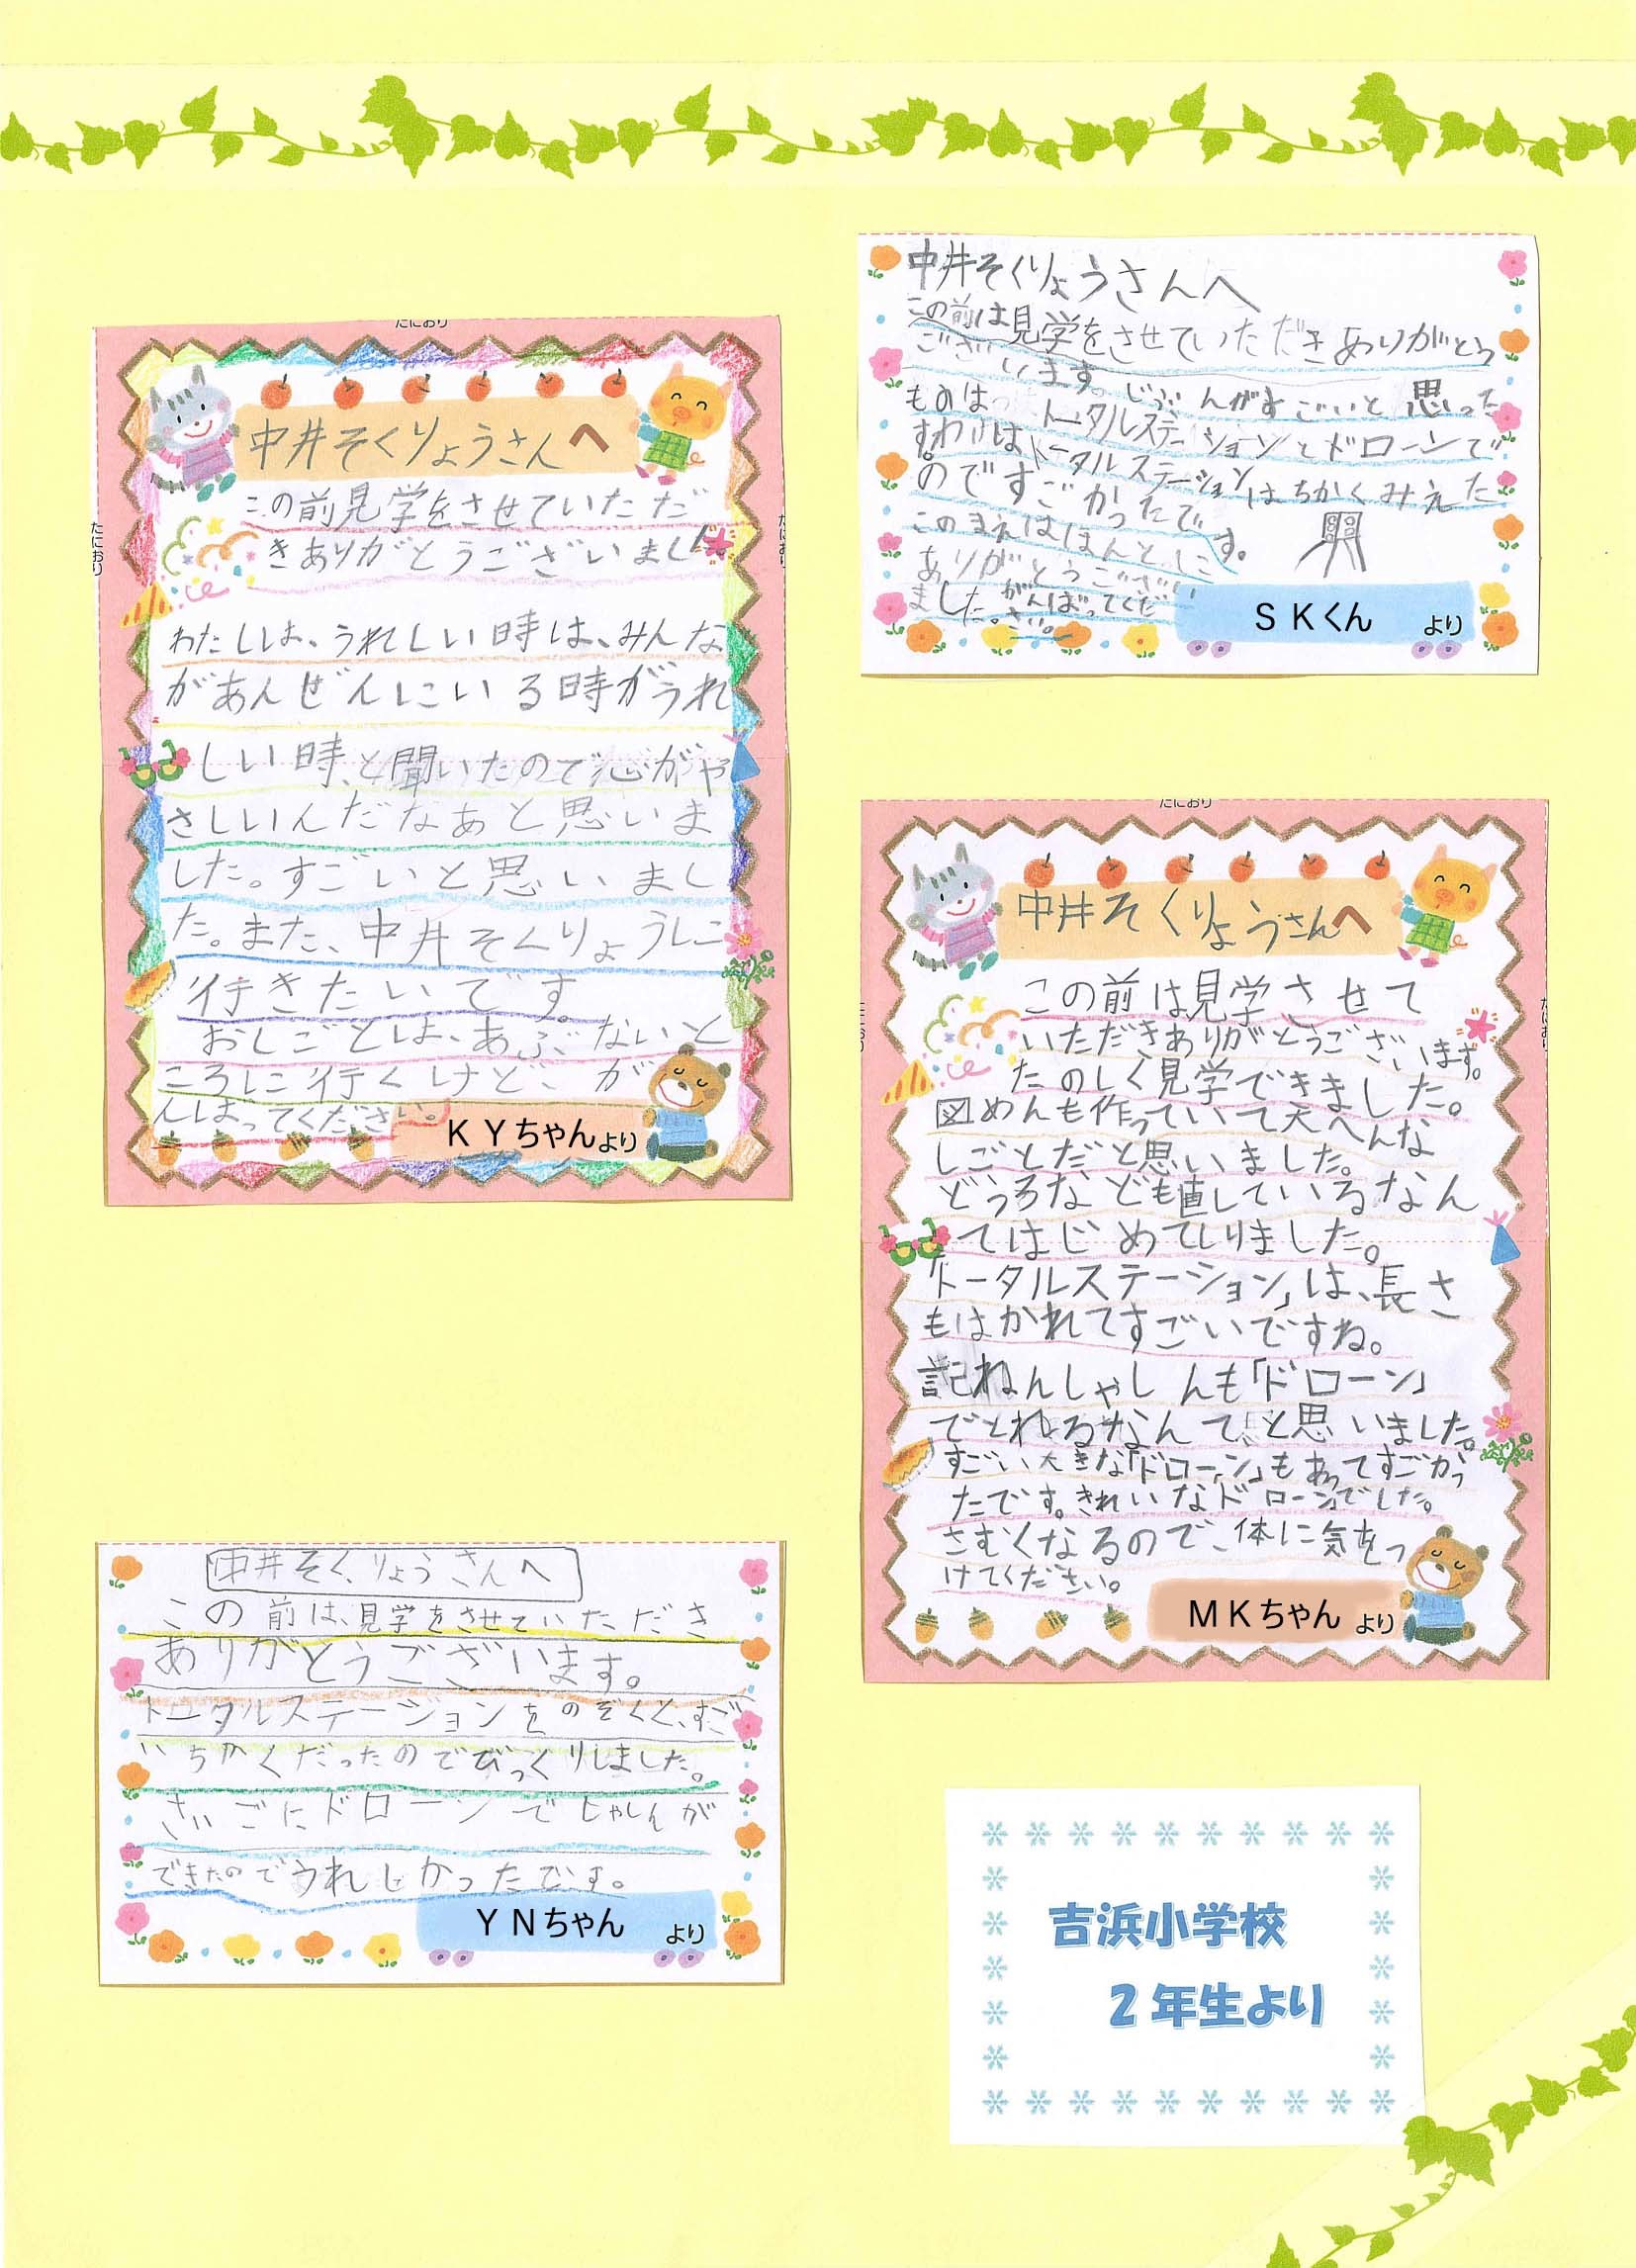 たにおり
中井そくりょうさんへ
この前見学をさせていただ
きありがとうございました
わたしは、うれしい時は、みんな
があんぜんにいる時がうれ
しい時、と聞いたので心がや
さしいんだなあと思いま
した。すごいと思いまし
た。また、中井そくりょうに
行きたいです。
おしごとは、あぶないと
ころに行くけど、が
んばってください。
KYちゃんより
たにおり
たにおり
中井そくりょうさんへ
この前は、見学をさせていただき
ありがとうございます。
トータルステーションをのぞくと、すご
いちかくだったのでびっくりしました。
さいごにドローンでしゃしんが
できたのでうれしかったです。
YNちゃん より
中井そくりょうさんへ
この前は見学をさせていただきありがとう
ございます。じぶんがすごいと思った
ものは、トータルステーションとドローンで
す。わけはトータルステーションはちかくみえた
のですごかったです。
このまえはほんとに
ありがとうござい
ました。がんばってくだ
さい。
SKくん より
たにおり
中井そくりょうさんへ
この前は見学させて
いただきありがとうございます。
たのしく見学できました。
図めんも作っていて大へんな
しごとだと思いました。
どうろなども直しているなん
てはじめてしりました。
「トータルステーション」は、長さ
もはかれてすごいですね。
記ねんしゃしんも「ドローン」
でとれるなんて、と思いました。
すごい大きな「ドローン」もあってすごかっ
たです。きれいなドローンでした。
さむくなるので、体に気をつ
けてください。
MKちゃん より
たにおり
吉浜小学校
2年生より